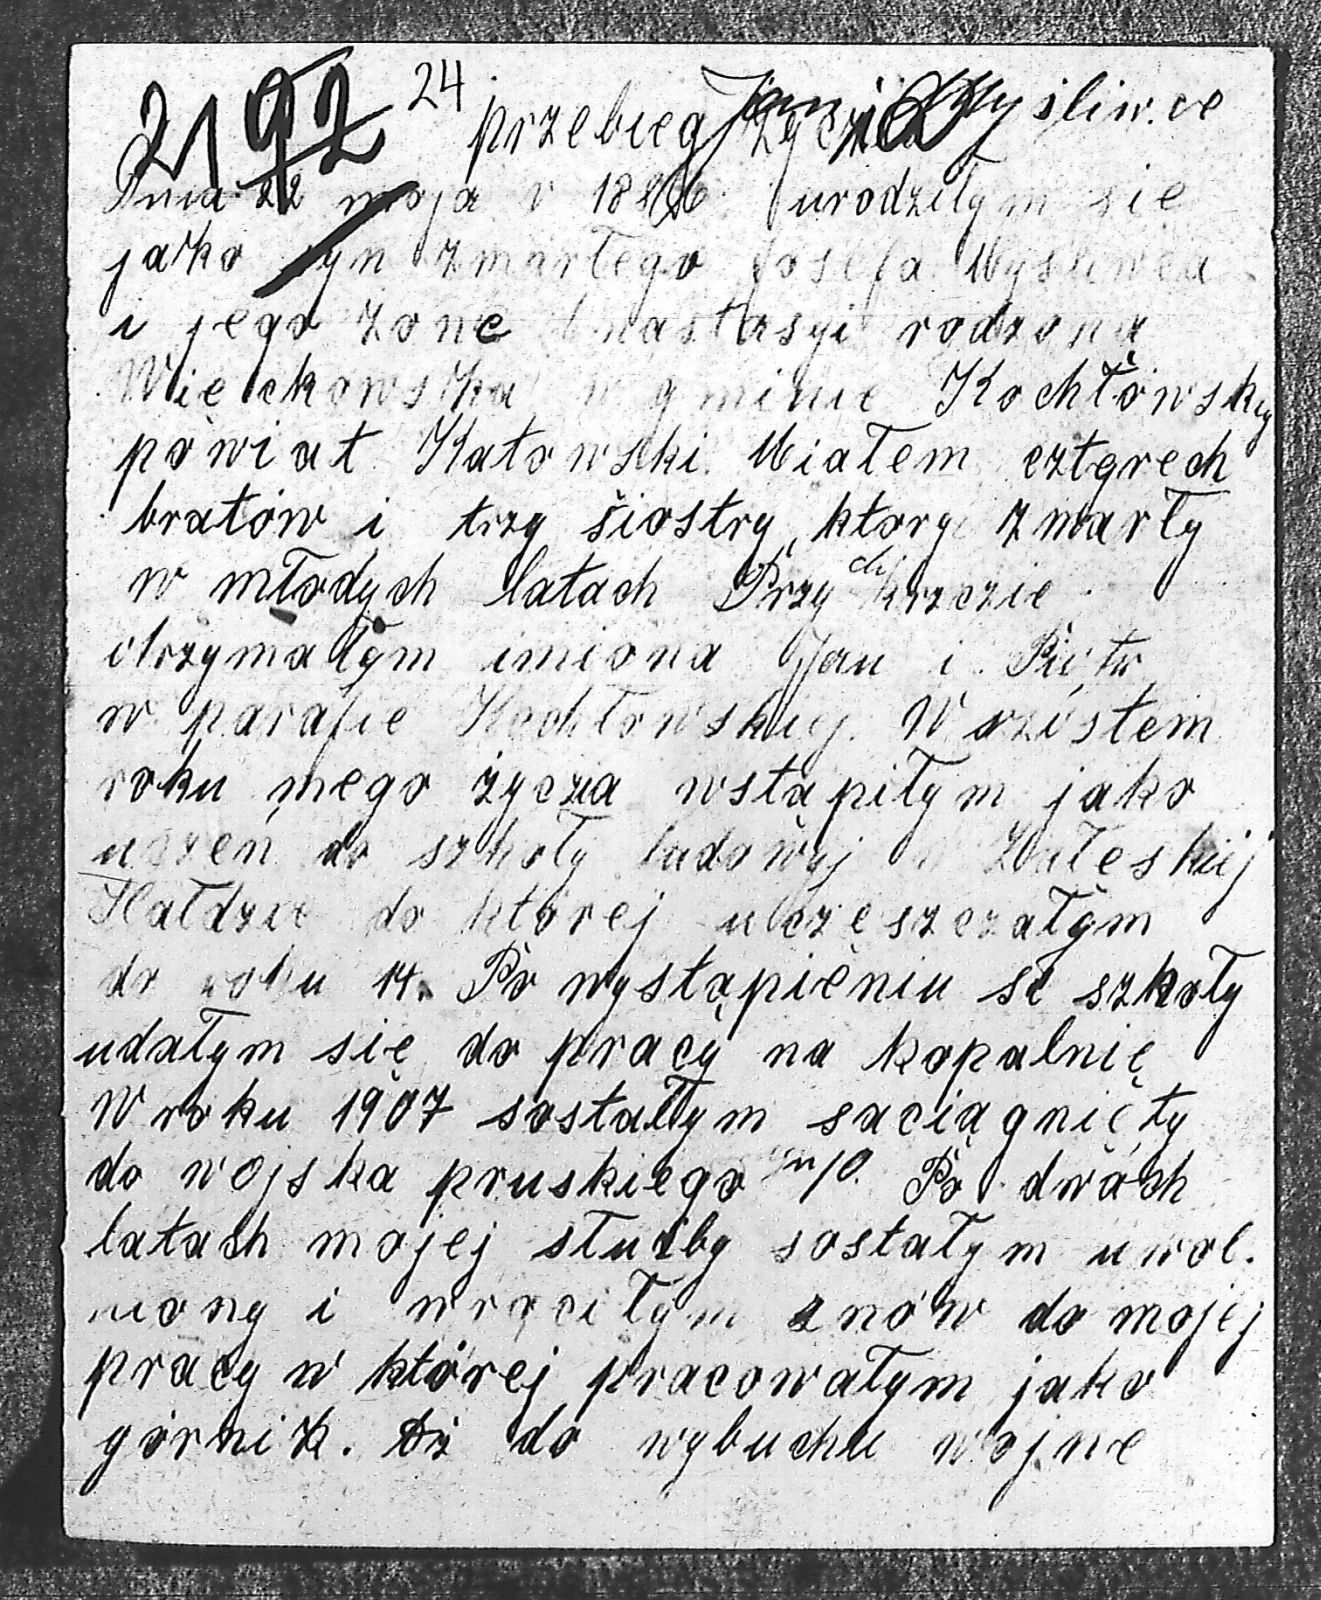 2192 24 przebieg życia Jan Myśliw.ce
Dnia 22 maja r 1886 urodziłym sie
jako syn zmarłego Josefa Myśliwca
i jego żone Anastasyi rodzona
Wieckowska w gminie Kochłówsky
powiat Katowski. Miałem cztyrech
bratów i trzy šiostry, ktory zmarły
w młodych latach Przy chkrzczie
otrzymałym imiona Jan i Piotr
w parafie Kochłowskiej. W szóstem
roku mego życzia wstąpiłym jako
uczeń do szkoły ludowej w Załeskiij
Hałdzie do której uczęszczałym
do roku 14. Po wystąpieniu se szkoły
udałym się do pracy na kopalnię
W roku 1907 sostałym saciągnięty
do wojska pruskiego yn 10. Po dwóch
latach mojej służby sostałym uwol.
niony i wróciłym znów do mojej
pracy w której pracowałym jako
górnik. Aż do wybuchu wojne